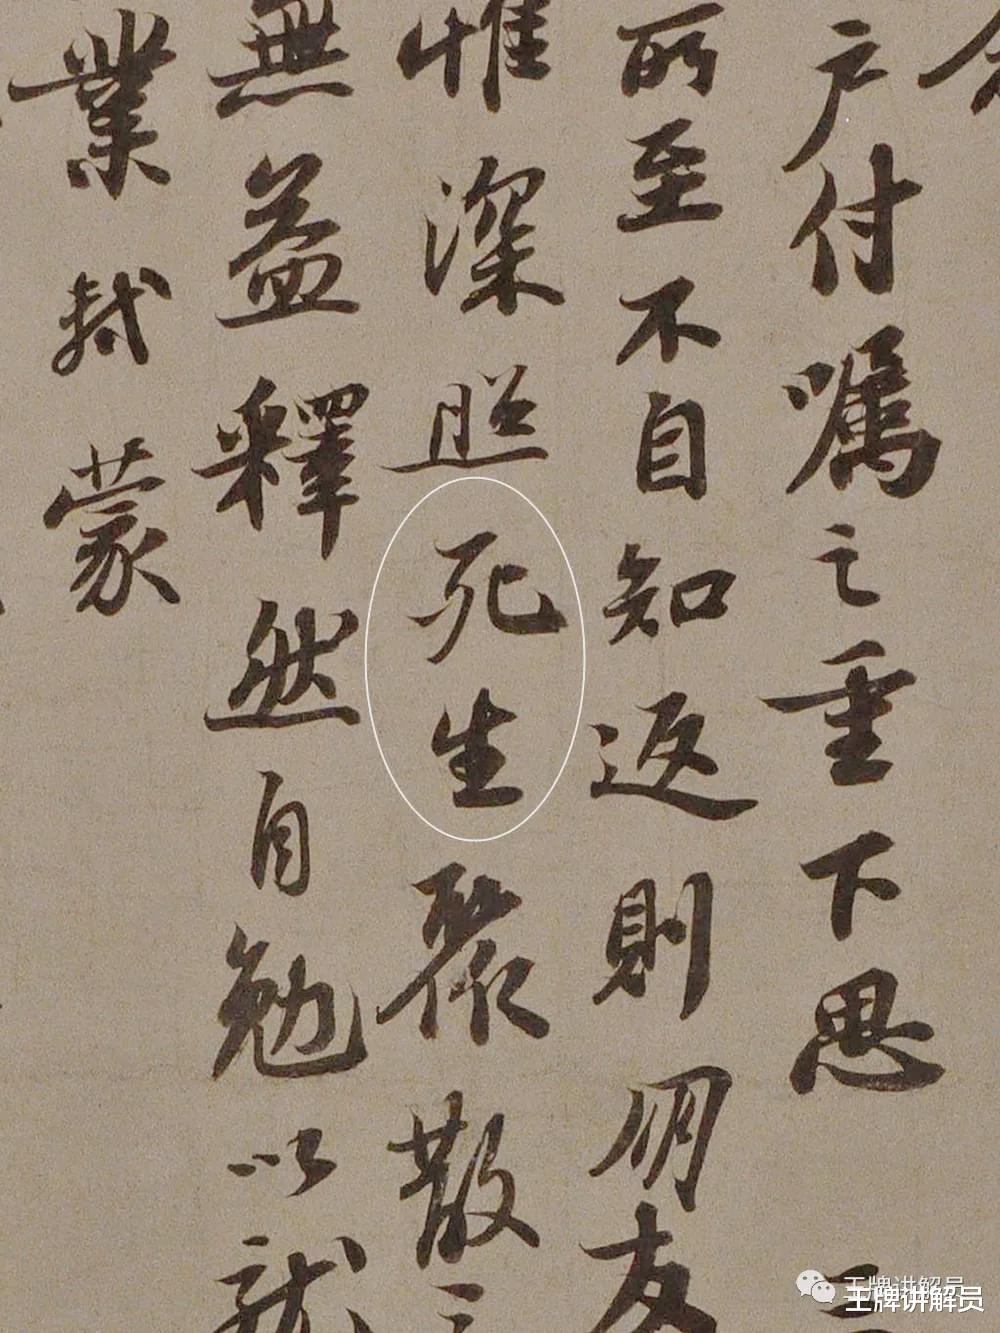 戶付囑之重下思
所至不自知返則朋友
惟深照死生聚散之
無益釋然自勉以就
業軾蒙
王牌讲解员
王牌讲解员